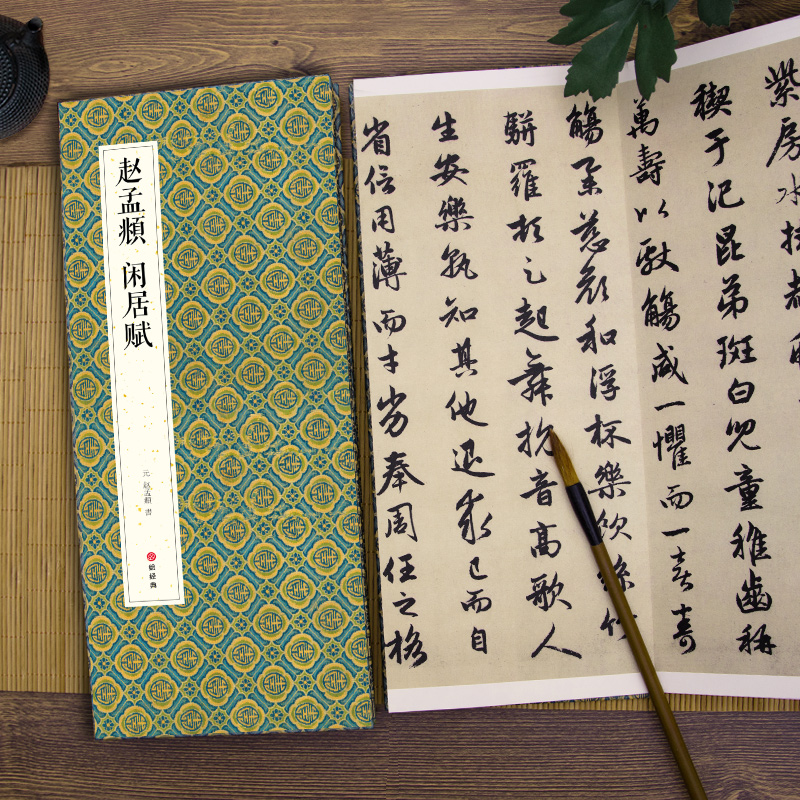 赵孟頫 闲居赋
元 赵孟頫 書
经典
紫房水挂
稧于汜昆弟斑白兒童稚齒稱
萬壽以獻觴咸一懼而一喜壽
觴舉慈顏和浮杯樂飲絲竹
駢羅頓足起舞抗音高歌人
生安樂孰知其他退求己而自
省信用薄而才劣奉周任之格